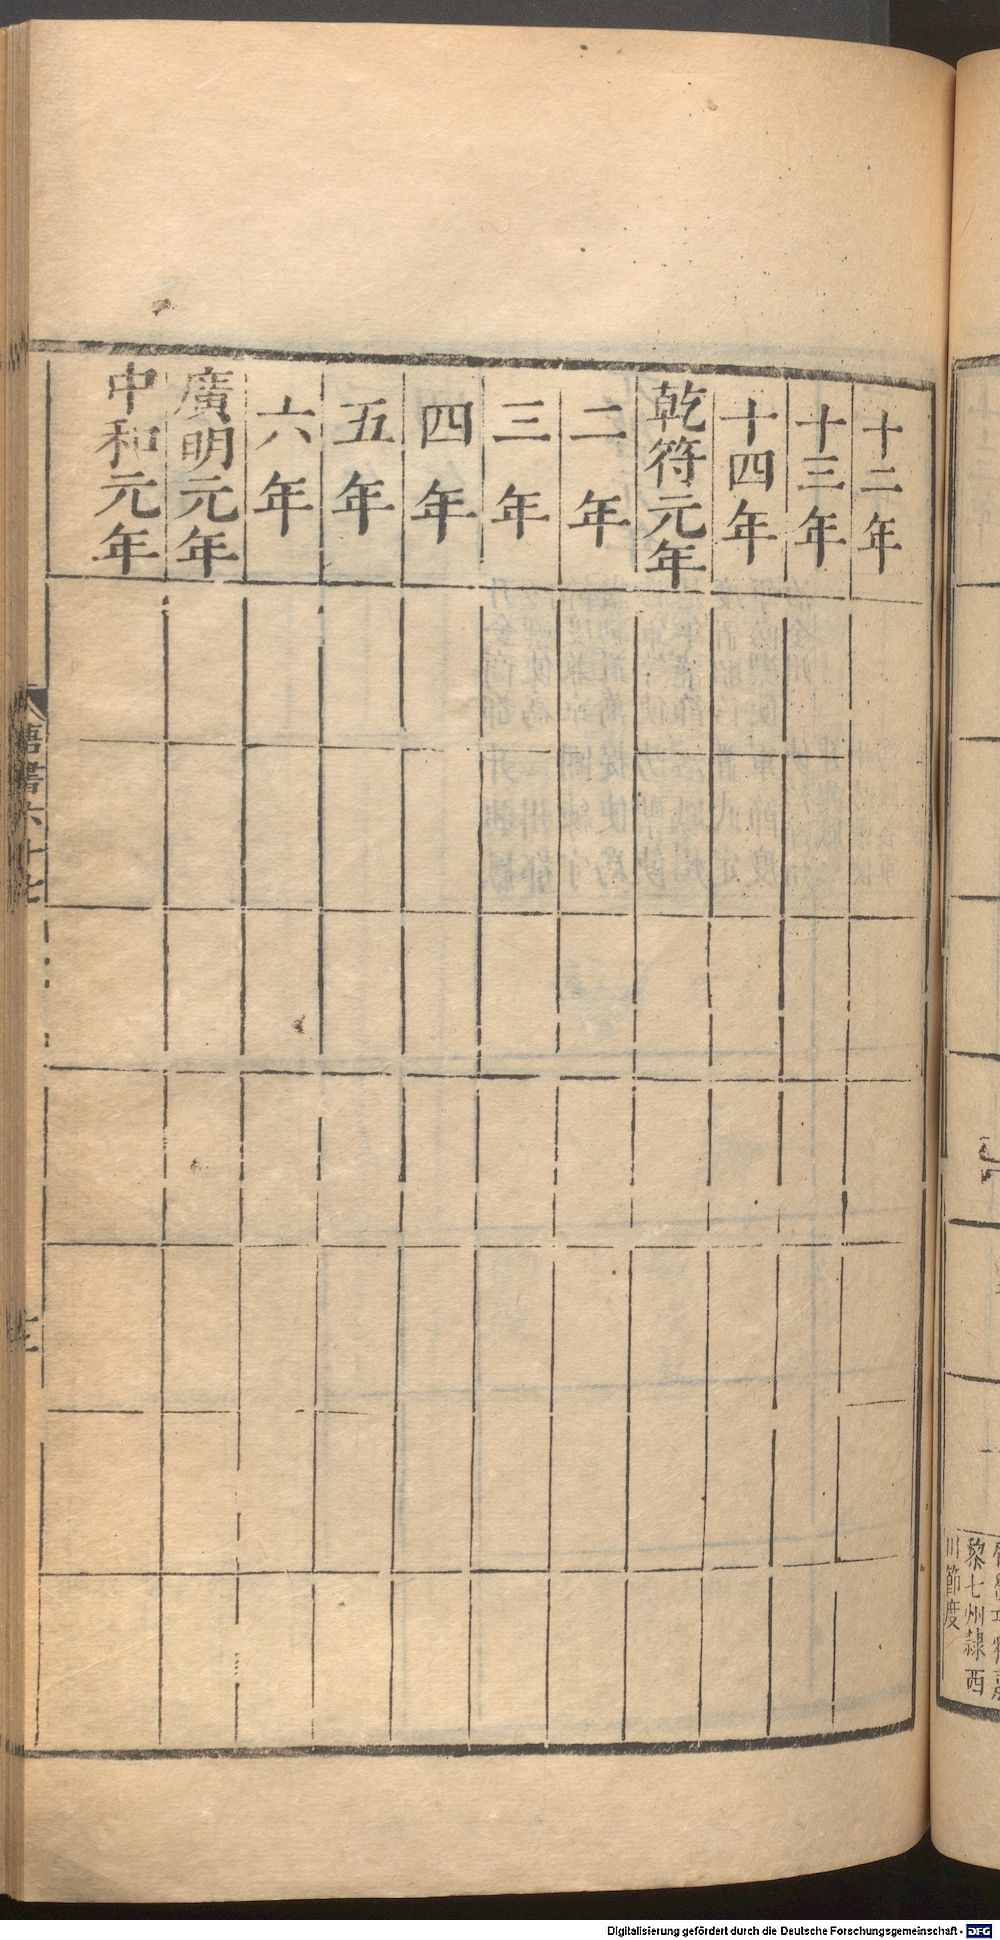 十二年
十三年
十四年
乾符元年
二年
三年
四年
五年
六年
廣明元年
中和元年
唐書六十七
黎七州隸西
川節度
Digitalisierung gefördert durch die Deutsche Forschungsgemeinschaft - DFG